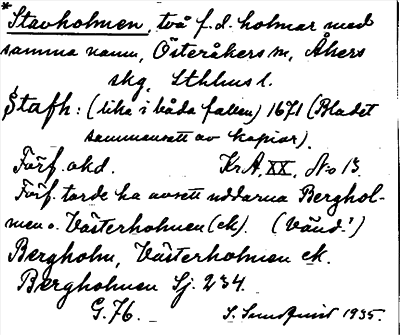 *Stavholmen, två f.d. holmar med
samma namn, Österåkers sn, Åkers
skg, Sthlms l.
Stafh: (lika i båda fallen) 1671 (Bladet
sammansatt av kopior).
Förf. okd. KrA, XX, No 13.
Förf. torde ha avsett uddarna Berghol-
men o. Västerholmen (ek). (Vänd!)
Bergholm, Västerholmen ek.
Bergholmen Sj. 234.
G. 76. S. Sundquist 1935.